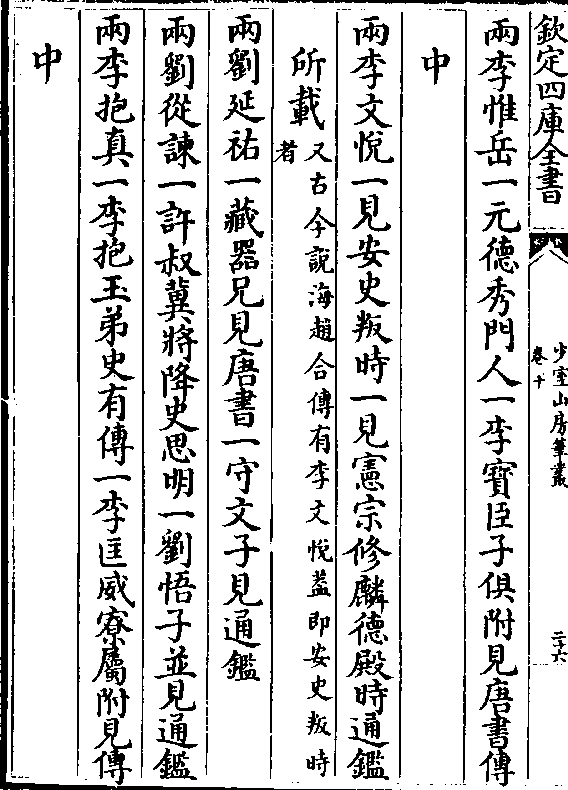 欽定四庫全書
少室山房筆叢
卷十
二十六
兩李惟岳一元德秀門人一李寶臣子俱附見唐書傳
中
兩李文悅一見安史叛時一見憲宗修麟德殿時通鑑
所載又古今說海趙合傳有李文悅葢即安史叛時
者
兩劉延祐一藏器兄見唐書一守文子見通鑑
兩劉從諫一許叔冀將降史思明一劉悟子並見通鑑
兩李抱真一李抱玉弟史有傳一李匡威寮屬附見傳
中